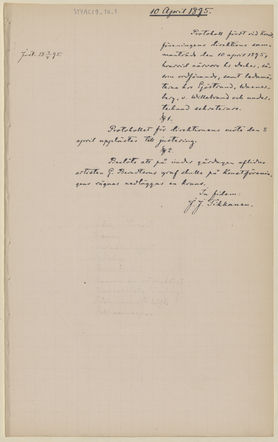 10 April 1895.
Just. 18 5/4 95.
Protokoll fördt vid Konst-
föreningens direktions sam-
manträde den 10 april 1895,
hvarvid närvoro hr Decker, så-
som ordförande, samt ledamö-
terna hrr Sjöstrand, Wasast-
jerna, v. Willebrand och under-
tecknad sekreterare.
§ 1.
Protokollet för direktionens möte den 5
april upplästes till justering.
§ 2.
Beslöts att på under gårdagen aflidne
artisten G. Berndtsons graf skulle på Konstförenin-
gens vägnar nedläggas en krans.
In fidem:
J. J. Tikkanen.